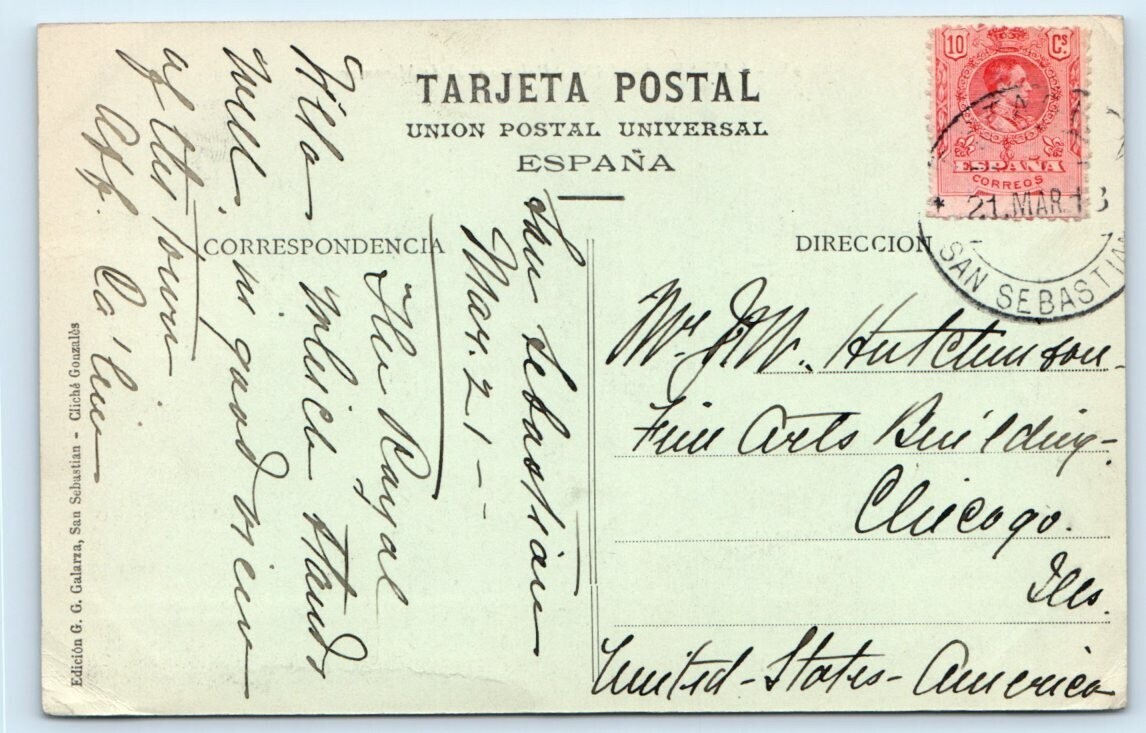 TARJETA POSTAL
UNION POSTAL UNIVERSAL
ESPAÑA
CORRESPONDENCIA
DIRECCION
10 Cs
ESPAÑA
CORREOS
* 21.MAR.13
SAN SEBASTIAN
San Sebastian
Mar. 21 -
The Royal
Villa which stands
well, no good view
of the town
Aff.
Mr. J.W. Hutchinson -
Fine Arts Building -
Chicago.
Ills.
United - States - America
Edición G. G. Galarza, San Sebastian - Cliché Gonzalès